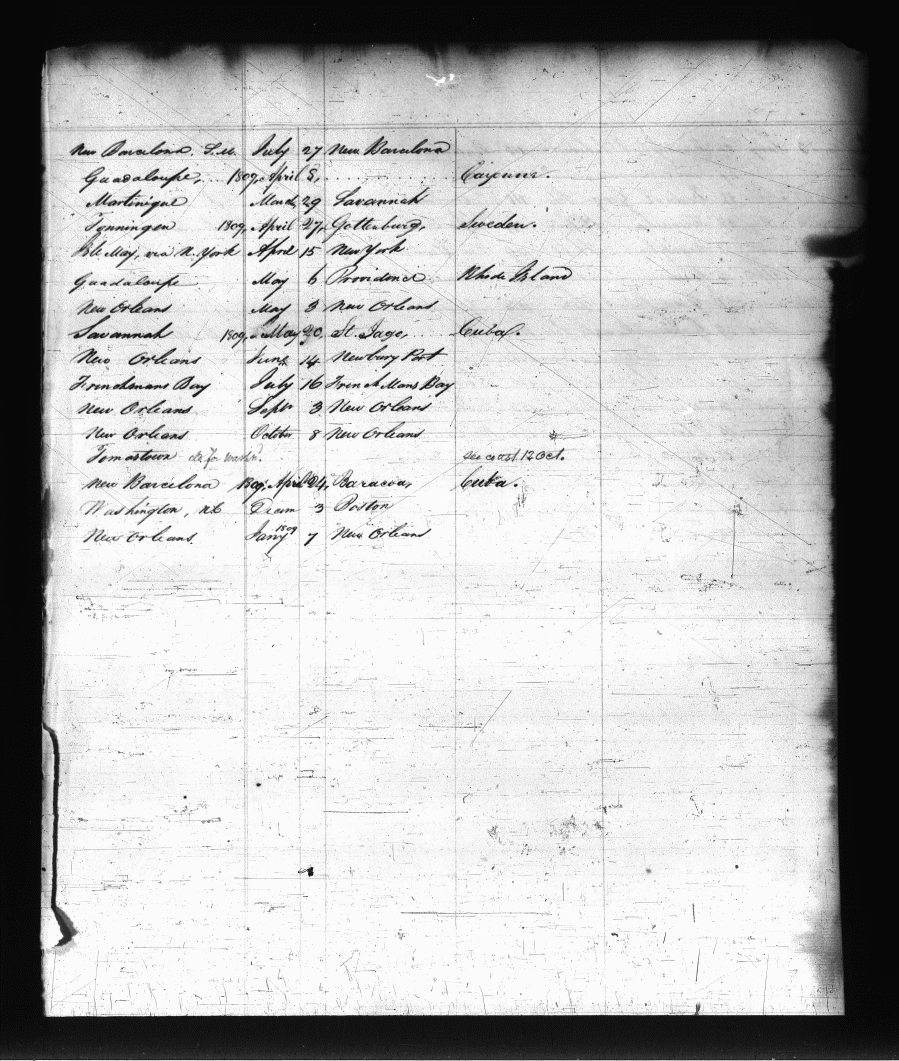 New Barcelona. S.M. July 27 New Barcelona
Guadaloupe, 1809, April 5, Cayenne.
Martinique March 29 Savannah
Tonningen 1809, April 27, Gottenburg, Sweden.
Isle May, via N. York April 15 New York
Guadaloupe May 6 Providence Rhode Island
New Orleans May 3 New Orleans
Savannah 1809, May 20, St. Jago, Cuba.
New Orleans June 14 Newbury Port
Frenchmans Bay July 16 French Mans Bay
New Orleans Septr 3 New Orleans
New Orleans October 8 New Orleans
Tomastown see coast. 12 Oct.
New Barcelona 1809, April 24, Baracoa, Cuba.
Washington, NC 3 Boston
New Orleans Jany 1809 7 New Orleans